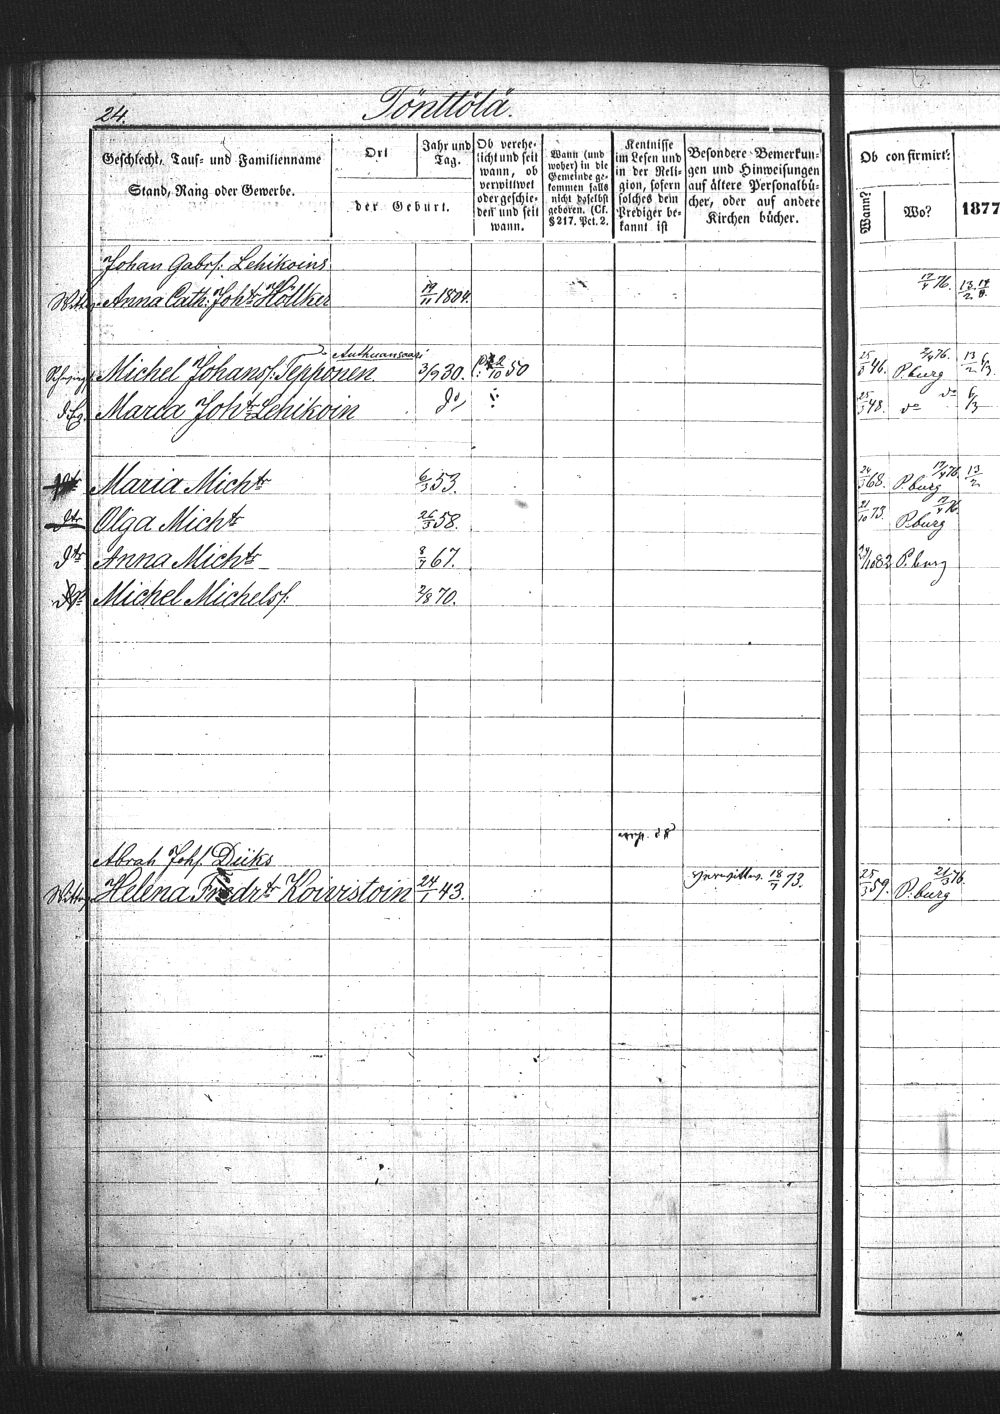 24. Tönttölä.
Geschlecht, Tauf- und Familienname
Stand, Rang oder Gewerbe.
Ort
der Geburt.
Jahr und
Tag.
Ob verehe-
licht und seit
wann, ob
verwittwet
oder geschie-
den und seit
wann.
Wann (und
woher) in die
Gemeinde ge-
kommen falls
nicht daselbst
geboren. (Cf.
§ 217. Pct. 2.
Kentnisse
im Lesen und
in der Reli-
gion, sofern
solches dem
Prediger be-
kannt ist
Besondere Bemerkun-
gen und Hinweisungen
auf ältere Personalbü-
cher, oder auf andere
Kirchen bücher.
Ob confirmirt:
Wann?
Wo?
1877
Johan Gabrs: Lehikoins
Anna Cath: Joh:tr Höllker 19/11 1804. 17/4 76. 13/2
Authuansaari
Michel Johans: Tepponen. 3/9 30. 2/10 50 25/3 46. P.burg 2/4 76. 13/2 6/13
Maria Joh:tr Lehikoin do 25/3 48. do do 6/13
Maria Mich:tr 6/3 53. 24/3 68. P.burg 17/4 76. 13/2
dtr Olga Mich:tr 26/3 58. 21/10 73. P.burg 17/4 76.
dtr Anna Mich:tr 8/7 67. 1882 P.burg
Michel Michels: 2/8 70.
Abrah Johs. Düks
Helena Fredr:tr Koivistoin 24/1 43. 18/7 73. 25/3 59. P.burg 21/3 76.